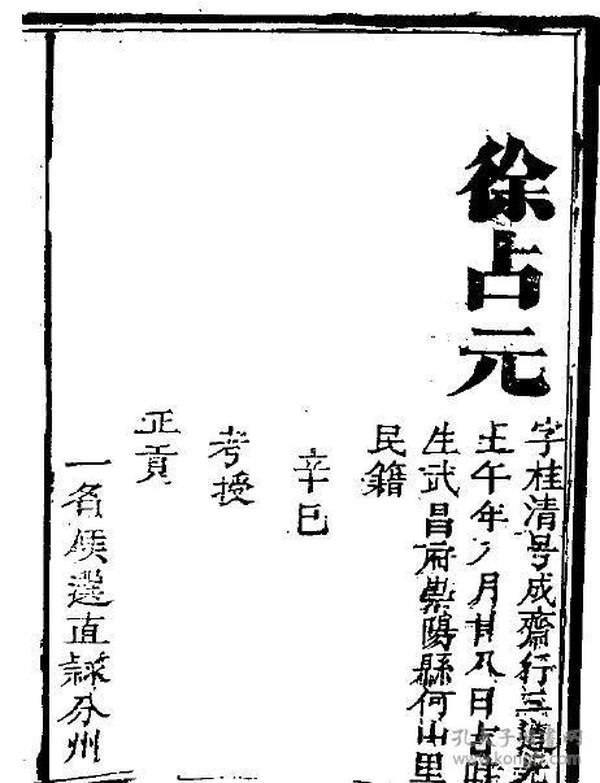 徐占元
字桂清号成齋行三道光
壬午年八月廿八日吉時
生武昌府崇陽縣何山里
民籍
辛巳
考授
正貢
一名候選直隸分州